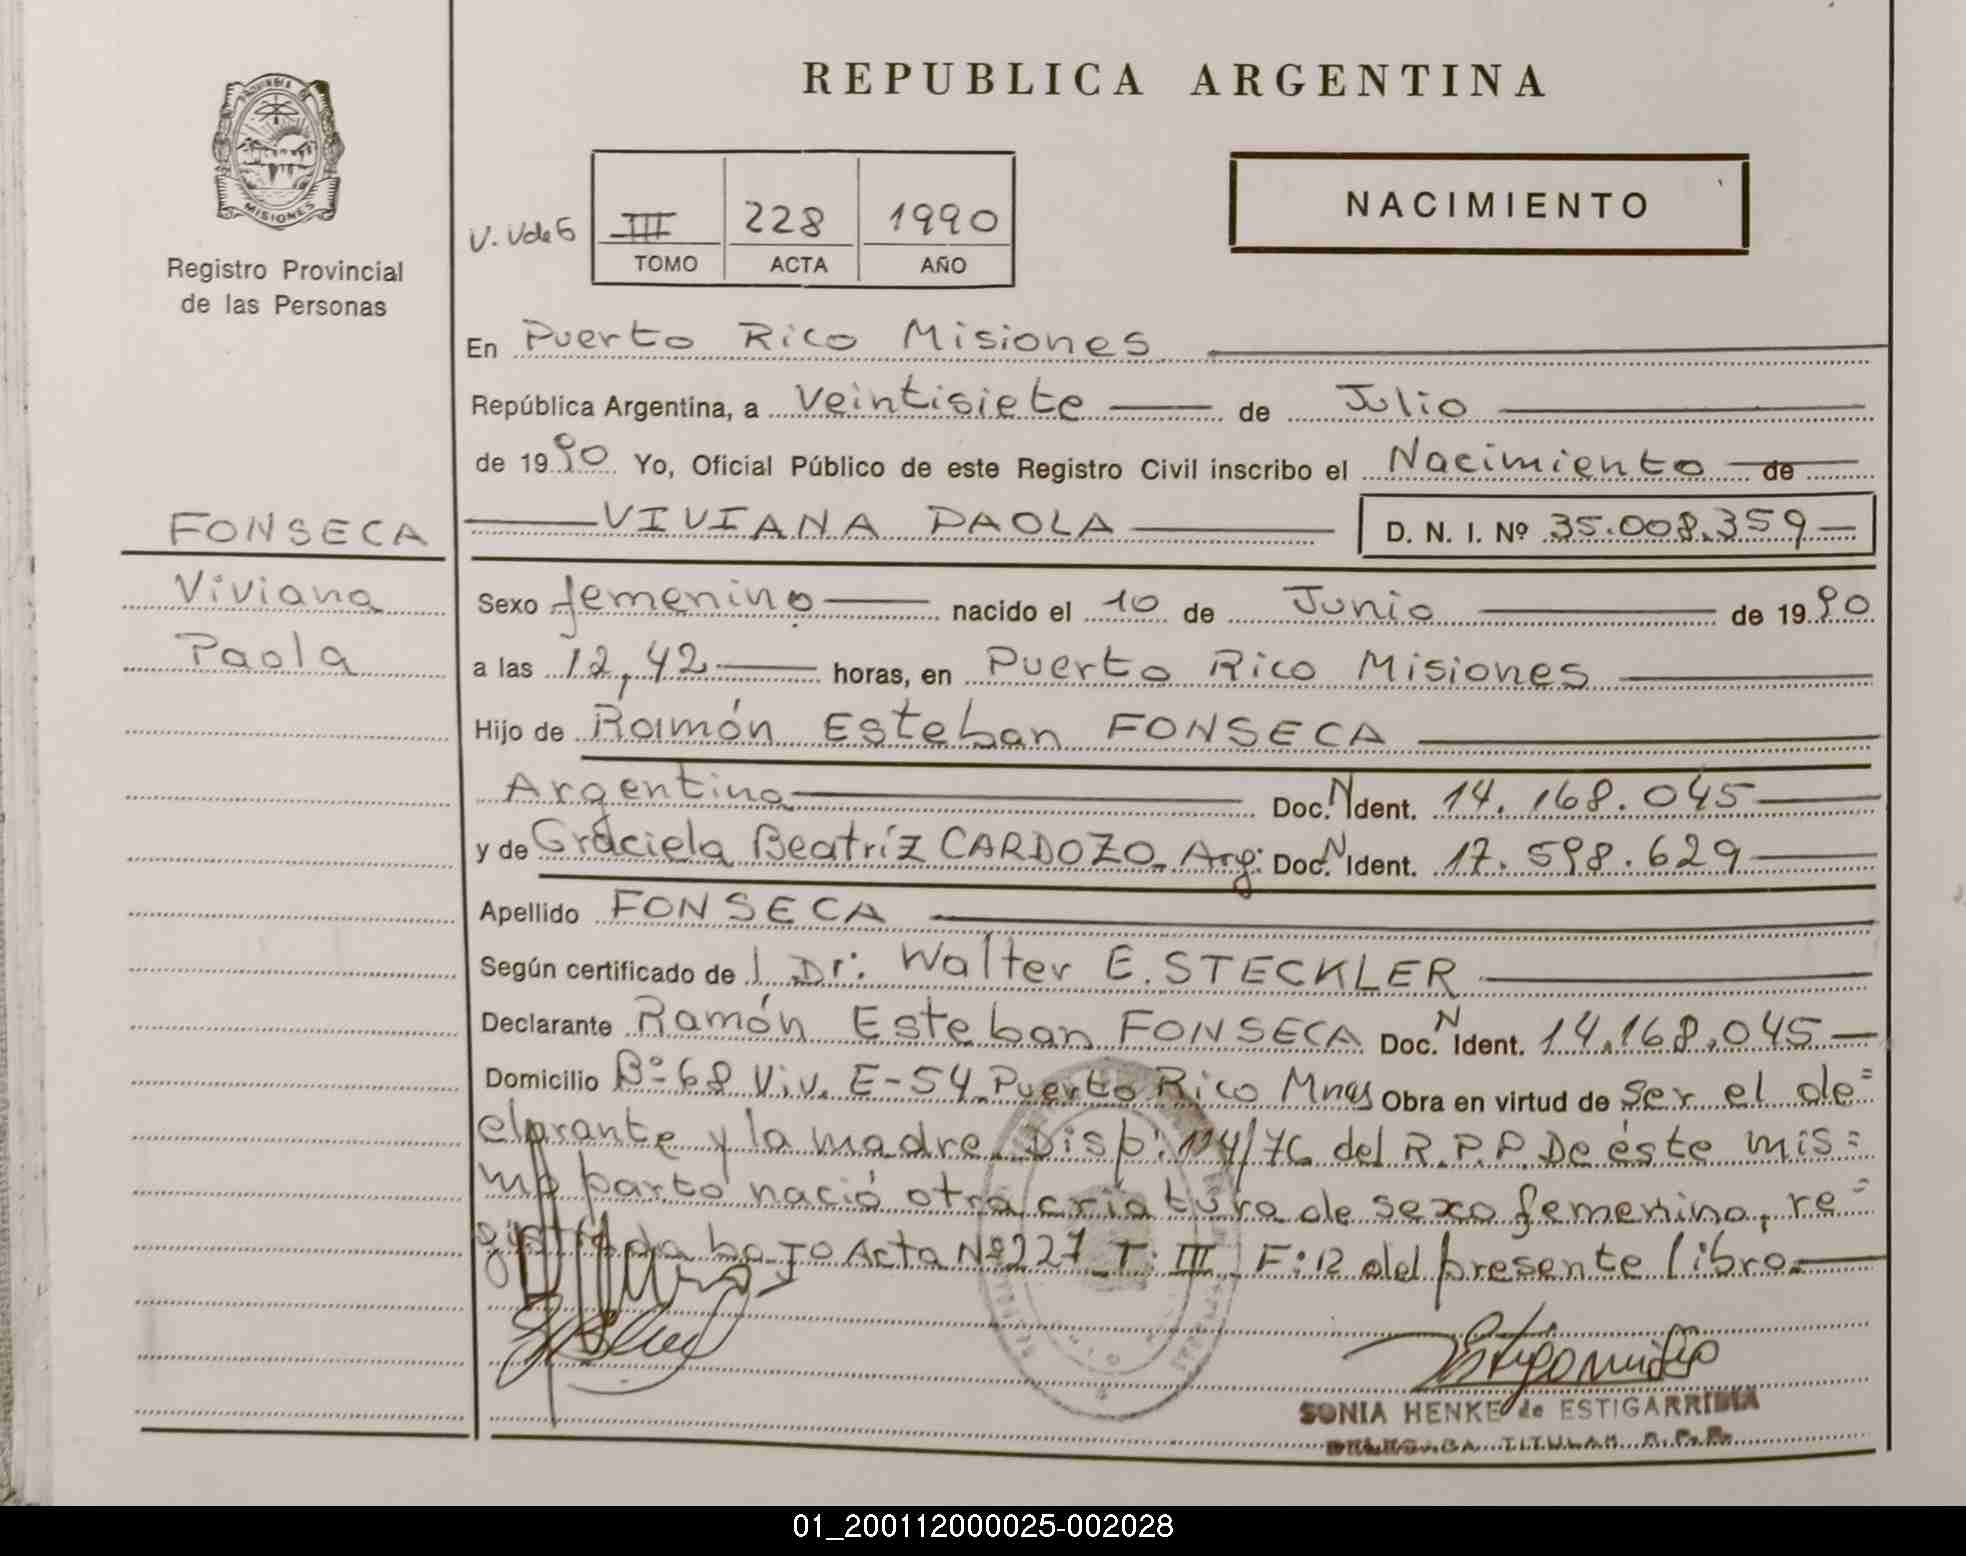 REPUBLICA ARGENTINA
PROVINCIA DE
MISIONES
Registro Provincial
de las Personas
NACIMIENTO
V. Vde6
III 228 1990
TOMO ACTA AÑO
En Puerto Rico Misiones
República Argentina, a Veintisiete de Julio
de 1990 Yo, Oficial Público de este Registro Civil inscribo el Nacimiento de
FONSECA
Viviana
Paola
VIVIANA PAOLA D. N. I. Nº 35.008.359
Sexo femenino nacido el 10 de Junio de 1990
a las 12,42 horas, en Puerto Rico Misiones
Hijo de Ramón Esteban FONSECA
Argentina Doc. N Ident. 14.168.045
y de Graciela Beatríz CARDOZO. Arg: Doc. N Ident. 17.598.629
Apellido FONSECA
Según certificado de l Dr: Walter E. STECKLER
Declarante Ramón Esteban FONSECA Doc. N Ident. 14.168.045
Domicilio Bº 68 Viv. E-54 Puerto Rico Mnes Obra en virtud de ser el de=
clarante y la madre Disp: 114/76 del R.P.P. De éste mis=
mo parto nació otra criatura de sexo femenino, re=
gistrada bajo Acta Nº 227 T: III F: 12 del presente libro.
SONIA HENKE de ESTIGARRIBIA
DELEGADA TITULAR R.P.P.
01_200112000025-002028